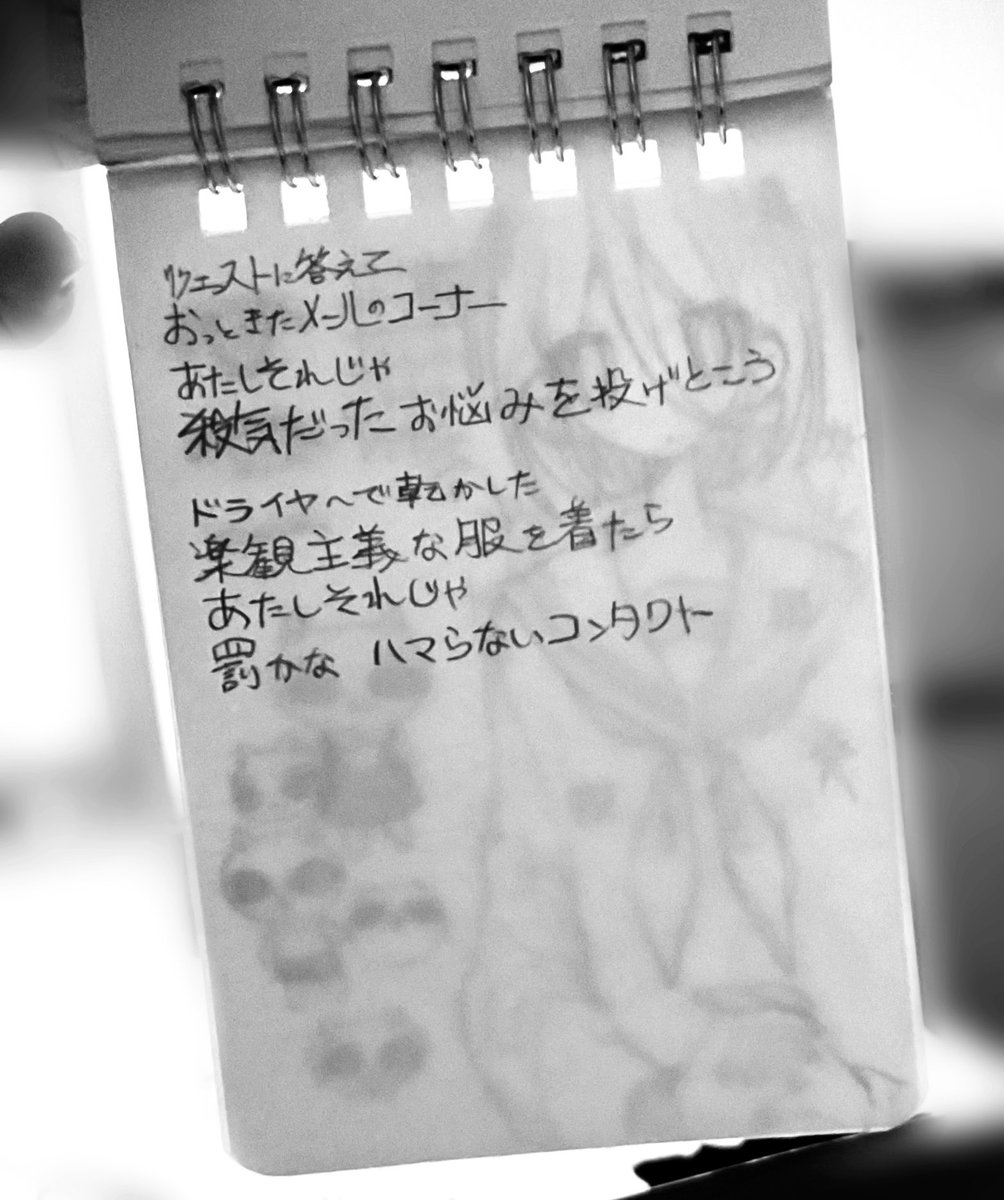 リクエストに答えて
おっときたメールのコーナー
あたしそれじゃ
殺気だったお悩みを投げとこう
ドライヤーで乾かした
楽観主義な服を着たら
あたしそれじゃ
罰かな ハマらないコンタクト